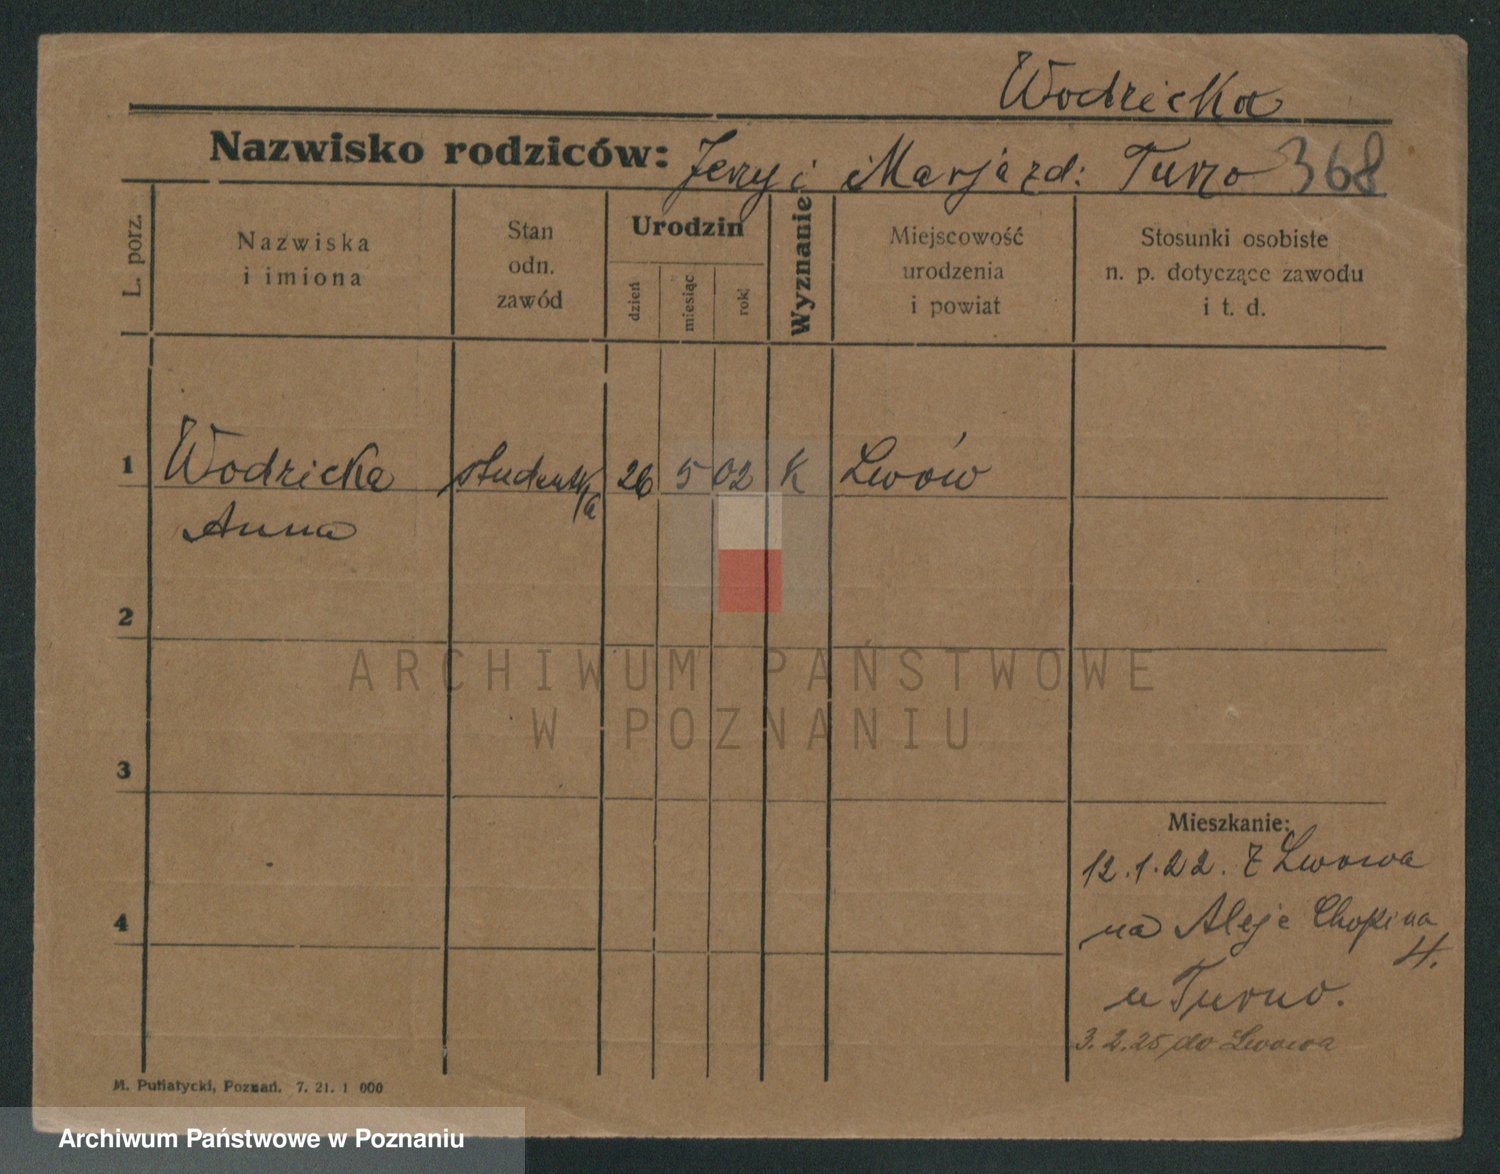 Wodzicka
Nazwisko rodziców: Jerzy i Marja zd: Turno 368
L. porz.
Nazwiska i imiona
Stan odn. zawód
Urodzin
dzień
miesiąc
rok
Wyznanie
Miejscowość urodzenia i powiat
Stosunki osobiste n. p. dotyczące zawodu i t. d.
1 Wodzicka studentka 26 5 02 K Lwów
Anna
2
3
4
Mieszkanie:
12.1.22. z Lwowa
na Aleje Chopina
4.
u Turno.
3.2.25 do Lwowa
M. Putiatycki, Poznań. 7. 21. 1 000
ARCHIWUM PAŃSTWOWE
W POZNANIU
Archiwum Państwowe w Poznaniu